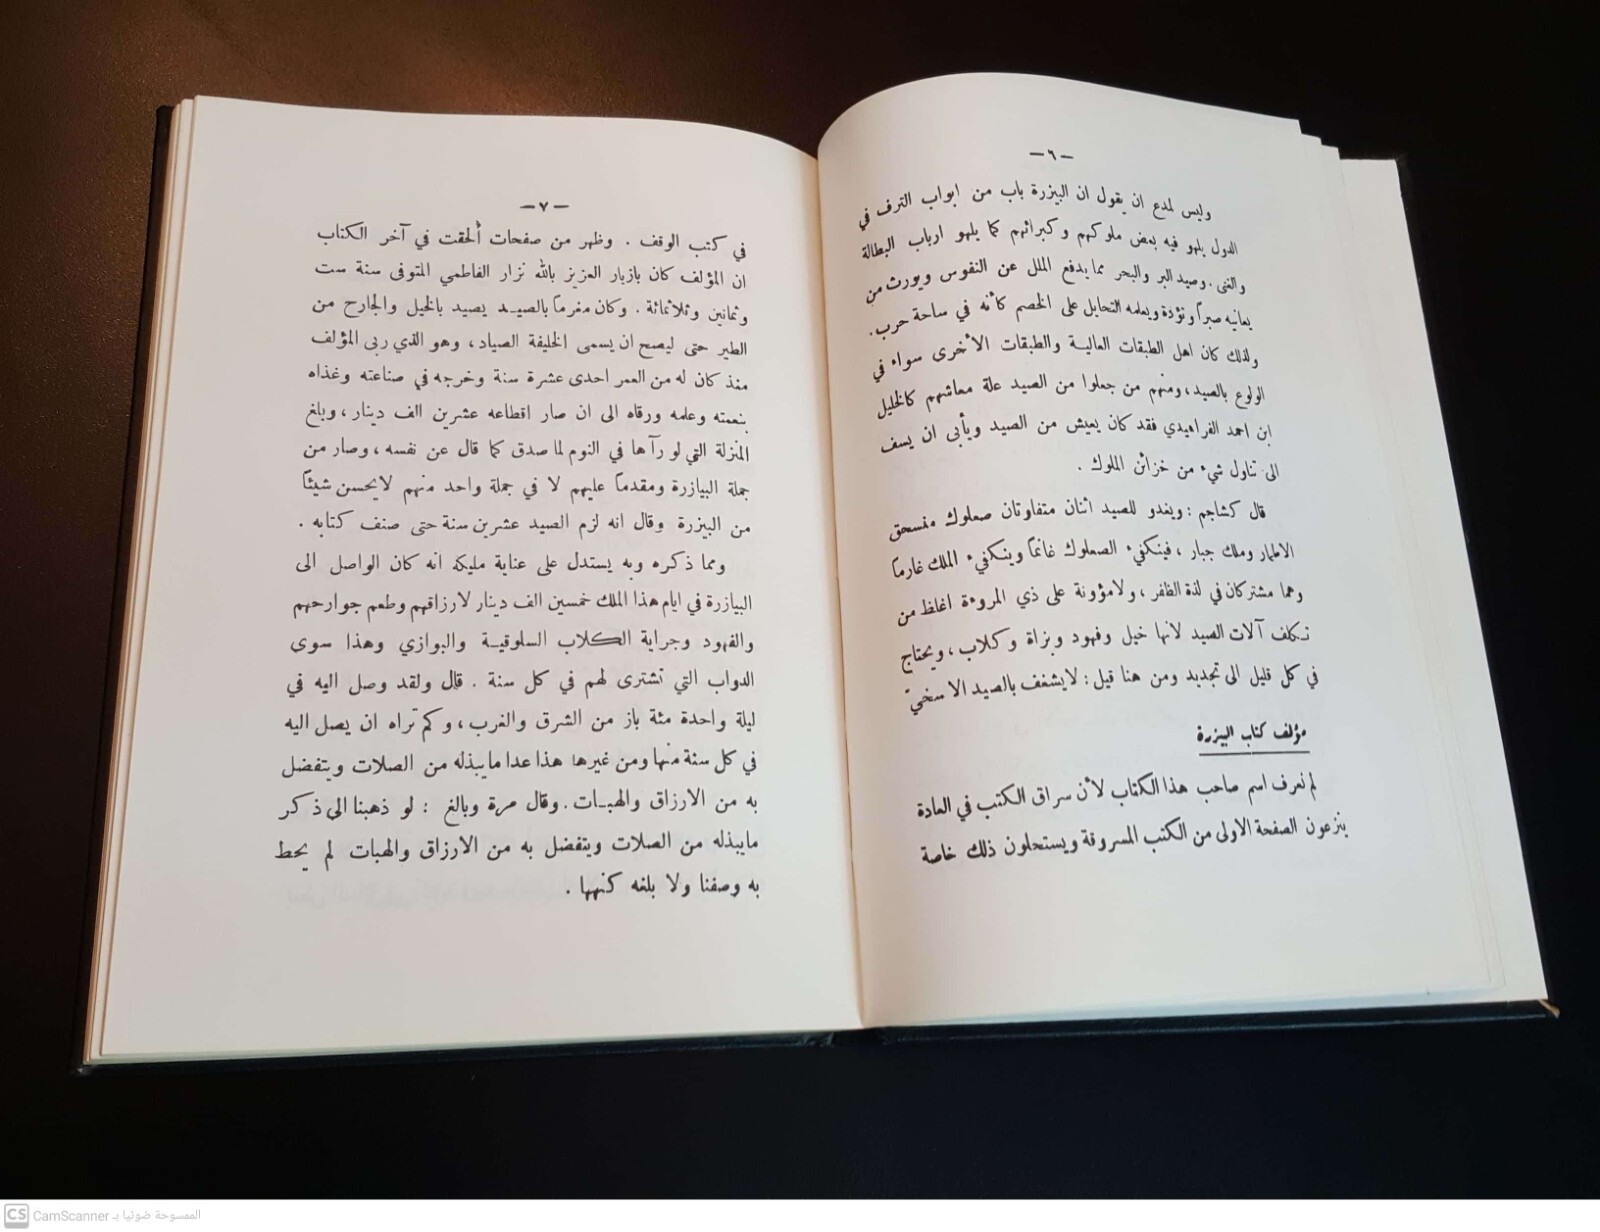 — ٦ —
وليس لمدع ان يقول ان البيزرة باب من ابواب الترف في
الدول يلهو فيه بعض ملوكهم وكبرائهم كما يلهو ارباب البطالة
والغنى. وصيد البر والبحر مما يدفع الملل عن النفوس ويورث من
يعانيه صبراً وتؤدة ويعلمه التحايل على الخصم كأنه في ساحة حرب.
ولذلك كان اهل الطبقات العالية والطبقات الأخرى سواء في
الولوع بالصيد، ومنهم من جعلوا من الصيد علة معاشهم كالخليل
ابن احمد الفراهيدي فقد كان يعيش من الصيد ويأبى ان يسف
الى تناول شيء من خزائن الملوك .
قال كشاجم : ويغدو للصيد اثنان متفاوتان صعلوك منسحق
الاطمار وملك جبار ، فينكفيء الصعلوك غانماً وينكفيء الملك غارماً
وهما مشتركان في لذة الظفر ، ولامؤونة على ذي المروءة اغلظ من
تكلف آلات الصيد لانها خيل وفهود وبزاة وكلاب ، ويحتاج
في كل قليل الى تجديد ومن هنا قيل : لايشغف بالصيد الا سخيّ
مؤلف كتاب البيزرة
لم نعرف اسم صاحب هذا الكتاب لأن سراق الكتب في العادة
ينزعون الصفحة الاولى من الكتب المسروقة ويستحلون ذلك خاصة
— ٧ —
في كتب الوقف . وظهر من صفحات أُلحقت في آخر الكتاب
ان المؤلف كان بازيار العزيز بالله نزار الفاطمي المتوفى سنة ست
وثمانين وثلاثمائة . وكان مغرماً بالصيد يصيد بالخيل والجارح من
الطير حتى ليصح ان يسمى الخليفة الصياد ، وهو الذي ربى المؤلف
منذ كان له من العمر احدى عشرة سنة وخرجه في صناعته وغذاه
بنعمته وعلمه ورقاه الى ان صار اقطاعه عشرين الف دينار ، وبلغ
المنزلة التي لو رآها في النوم لما صدق كما قال عن نفسه ، وصار من
جملة البيازرة ومقدماً عليهم لا في جملة واحد منهم لايحسن شيئاً
من البيزرة وقال انه لزم الصيد عشرين سنة حتى صنف كتابه .
ومما ذكره وبه يستدل على عناية مليكه انه كان الواصل الى
البيازرة في ايام هذا الملك خمسين الف دينار لارزاقهم وطعم جوارحهم
والفهود وجراية الكلاب السلوقية والبوازي وهذا سوى
الدواب التي تشترى لهم في كل سنة . قال ولقد وصل اليه في
ليلة واحدة مئة باز من الشرق والغرب ، وكم تراه ان يصل اليه
في كل سنة منها ومن غيرها هذا عدا مايبذله من الصلات ويتفضل
به من الارزاق والهبات . وقال مرة وبالغ : لو ذهبنا الى ذكر
مايبذله من الصلات ويتفضل به من الارزاق والهبات لم يحط
به وصفنا ولا بلغه كنهها .
CS CamScanner الممسوحة ضوئيا بـ